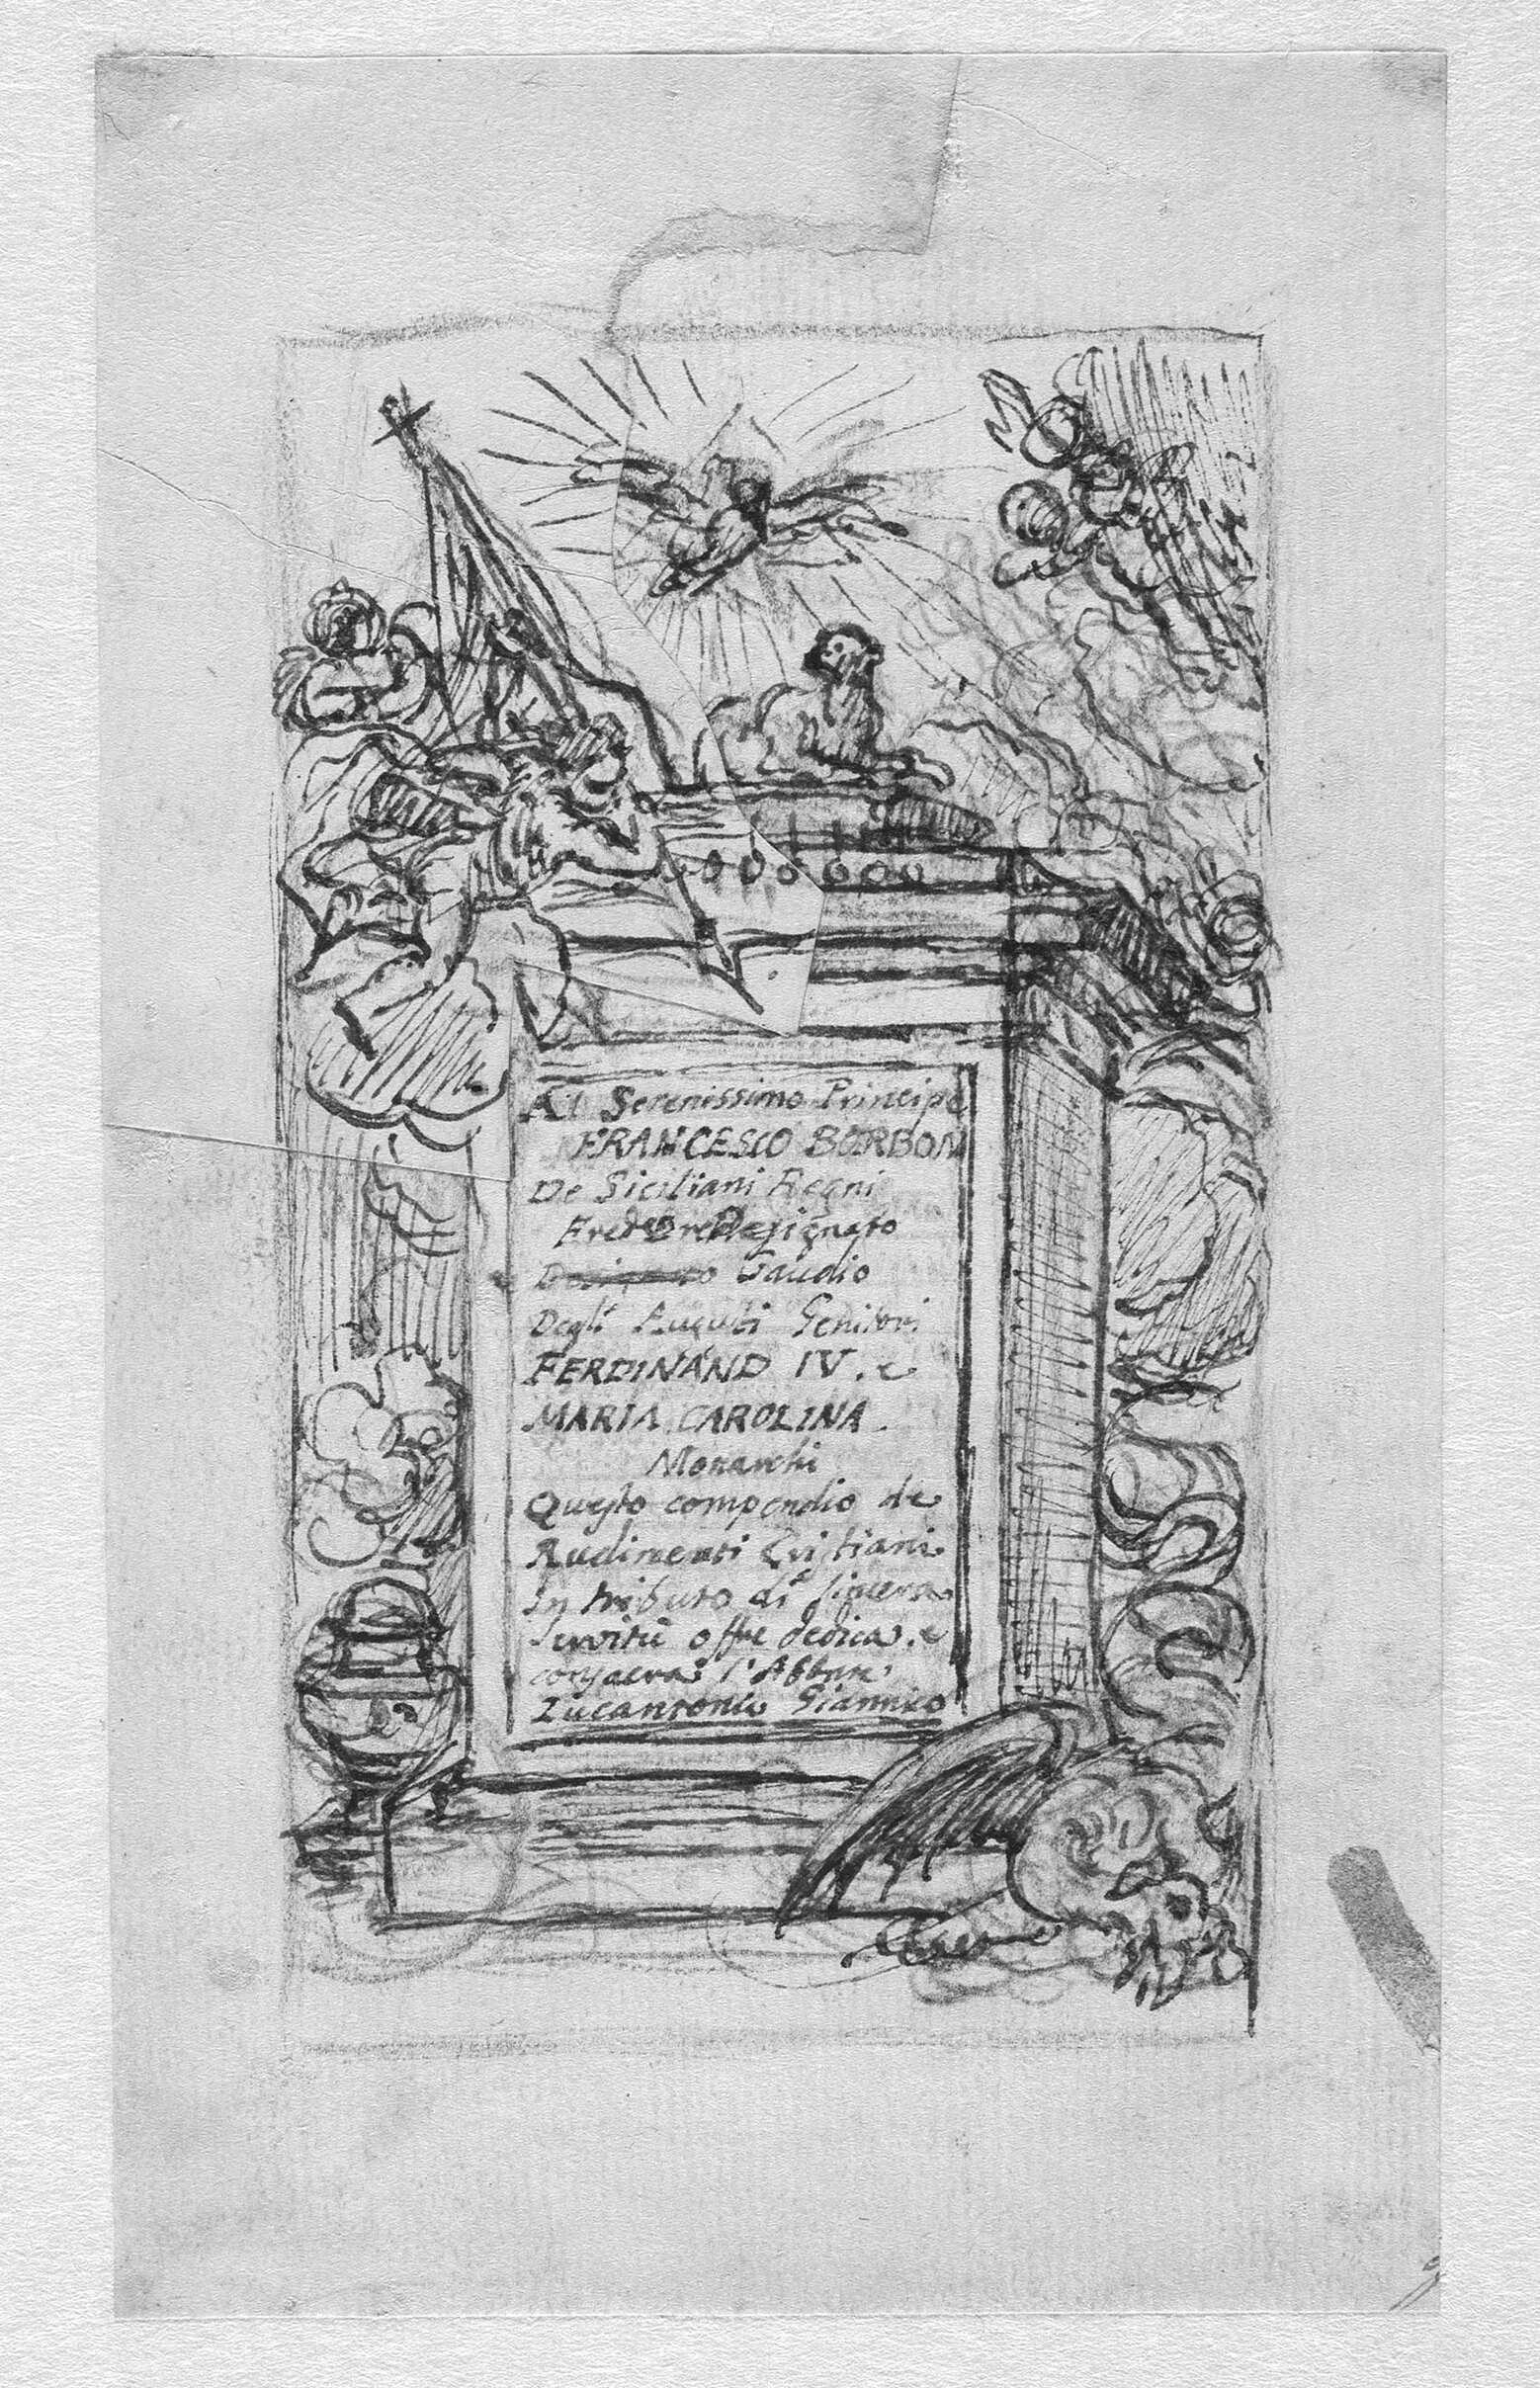 Al Serenissimo Principe
FRANCESCO BORBON
De Siciliani Regni
Erede Designato
Gaudio
Degli Augusti Genitori
FERDINAND IV. e
MARIA CAROLINA
Monarchi
Questo compendio de
Rudimenti Cristiani
In tributo di sincera
Servitù offre dedica. e
consacra l'Abbate
Lucantonio Giannico